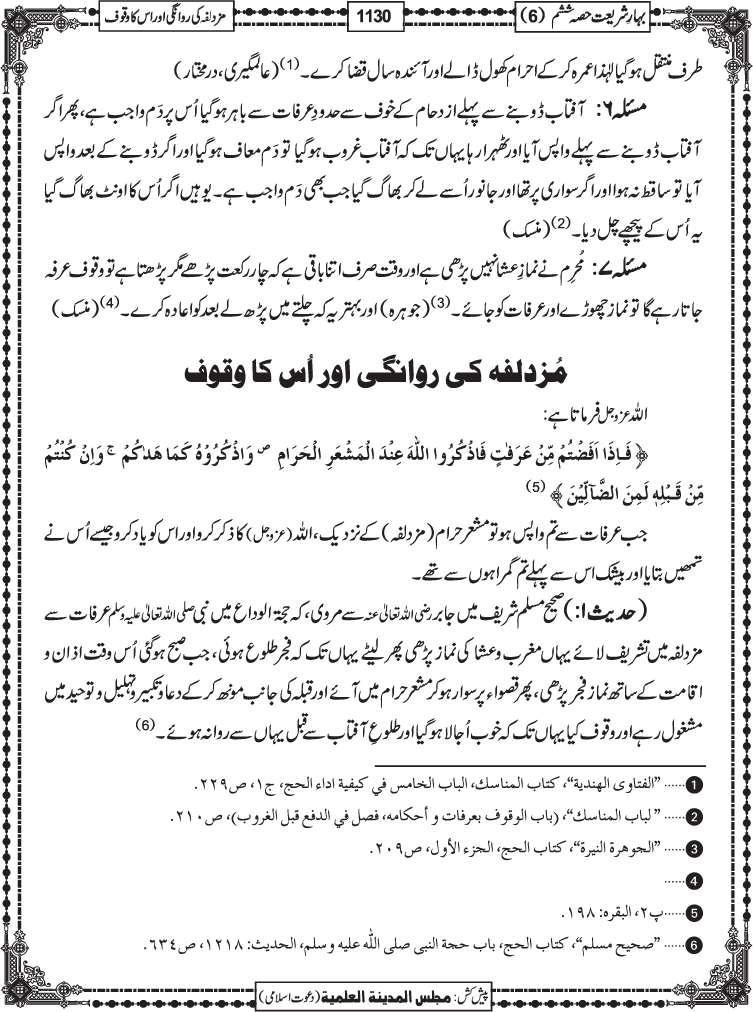 بہارِ شریعت حصہ ششم (6)
1130
مزدلفہ کی روانگی اور اس کا وقوف
طرف منتقل ہوگیا لہٰذا عمرہ کرکے احرام کھول ڈالے اور آئندہ سال قضا کرے۔ (1) (عالمگیری، درمختار)
مسئلہ ۶: آفتاب ڈوبنے سے پہلے ازدحام کے خوف سے حدودِ عرفات سے باہر ہوگیا اُس پر دَم واجب ہے، پھر اگر
آفتاب ڈوبنے سے پہلے واپس آیا اور ٹھہرا رہا یہاں تک کہ آفتاب غروب ہوگیا تو دَم معاف ہوگیا اور اگر ڈوبنے کے بعد واپس
آیا تو ساقط نہ ہوا اور اگر سواری پر تھا اور جانور اُسے لے کر بھاگ گیا جب بھی دَم واجب ہے۔ یوہیں اگر اُس کا اونٹ بھاگ گیا
یہ اُس کے پیچھے چل دیا۔ (2) (منسک)
مسئلہ ۷: مُحرِم نے نمازِ عشا نہیں پڑھی ہے اور وقت صرف اتنا باقی ہے کہ چار رکعت پڑھے مگر پڑھتا ہے تو وقوفِ عرفہ
جاتا رہے گا تو نماز چھوڑے اور عرفات کو جائے۔ (3) (جوہرہ) اور بہتر یہ کہ چلتے میں پڑھ لے بعد کو اعادہ کرے۔ (4) (منسک)
مُزدلفہ کی روانگی اور اُس کا وقوف
اللہ عزوجل فرماتا ہے:
﴿ فَاِذَاۤ اَفَضْتُمْ مِّنْ عَرَفٰتٍ فَاذْكُرُوا اللّٰهَ عِنْدَ الْمَشْعَرِ الْحَرَامِ ۪ وَاذْكُرُوْهُ كَمَا هَدٰىكُمْ ۚ وَاِنْ كُنْتُمْ
مِّنْ قَبْلِهٖ لَمِنَ الضَّآلِّيْنَ ﴾ (5)
جب عرفات سے تم واپس ہو تو مشعر حرام (مزدلفہ) کے نزدیک، اللہ (عزوجل) کا ذکر کرو اور اس کو یاد کرو جیسے اُس نے
تمھیں بتایا اور بیشک اس سے پہلے تم گمراہوں سے تھے۔
(حدیث ۱:) صحیح مسلم شریف میں جابر رضی اللہ تعالیٰ عنہ سے مروی، کہ حجۃ الوداع میں نبی صلی اللہ تعالیٰ علیہ وسلم عرفات سے
مزدلفہ میں تشریف لائے یہاں مغرب و عشا کی نماز پڑھی پھر لیٹے یہاں تک کہ فجر طلوع ہوئی، جب صبح ہوگئی اُس وقت اذان و
اقامت کے ساتھ نماز فجر پڑھی، پھر قصواء پر سوار ہوکر مشعر حرام میں آئے اور قبلہ کی جانب مونھ کرکے دعا و تکبیر و تہلیل و توحید میں
مشغول رہے اور وقوف کیا یہاں تک کہ خوب اُجالا ہوگیا اور طلوعِ آفتاب سے قبل یہاں سے روانہ ہوئے۔ (6)
1 ...... ”الفتاوی الھندیة“، کتاب المناسك، الباب الخامس في كيفية اداء الحج، ج۱، ص۲۲۹.
2 ...... ” لباب المناسك“، (باب الوقوف بعرفات و أحكامه، فصل في الدفع قبل الغروب)، ص۲۱۰.
3 ...... ”الجوهرة النيرة“، كتاب الحج، الجزء الأول، ص۲۰۹.
4 ......
5 ......پ۲، البقره: ۱۹۸.
6 ...... ”صحيح مسلم“، كتاب الحج، باب حجة النبی صلی الله عليه وسلم، الحديث: ۱۲۱۸، ص۶۳۴.
پیش کش: مجلس المدینة العلمیة (دعوتِ اسلامی)